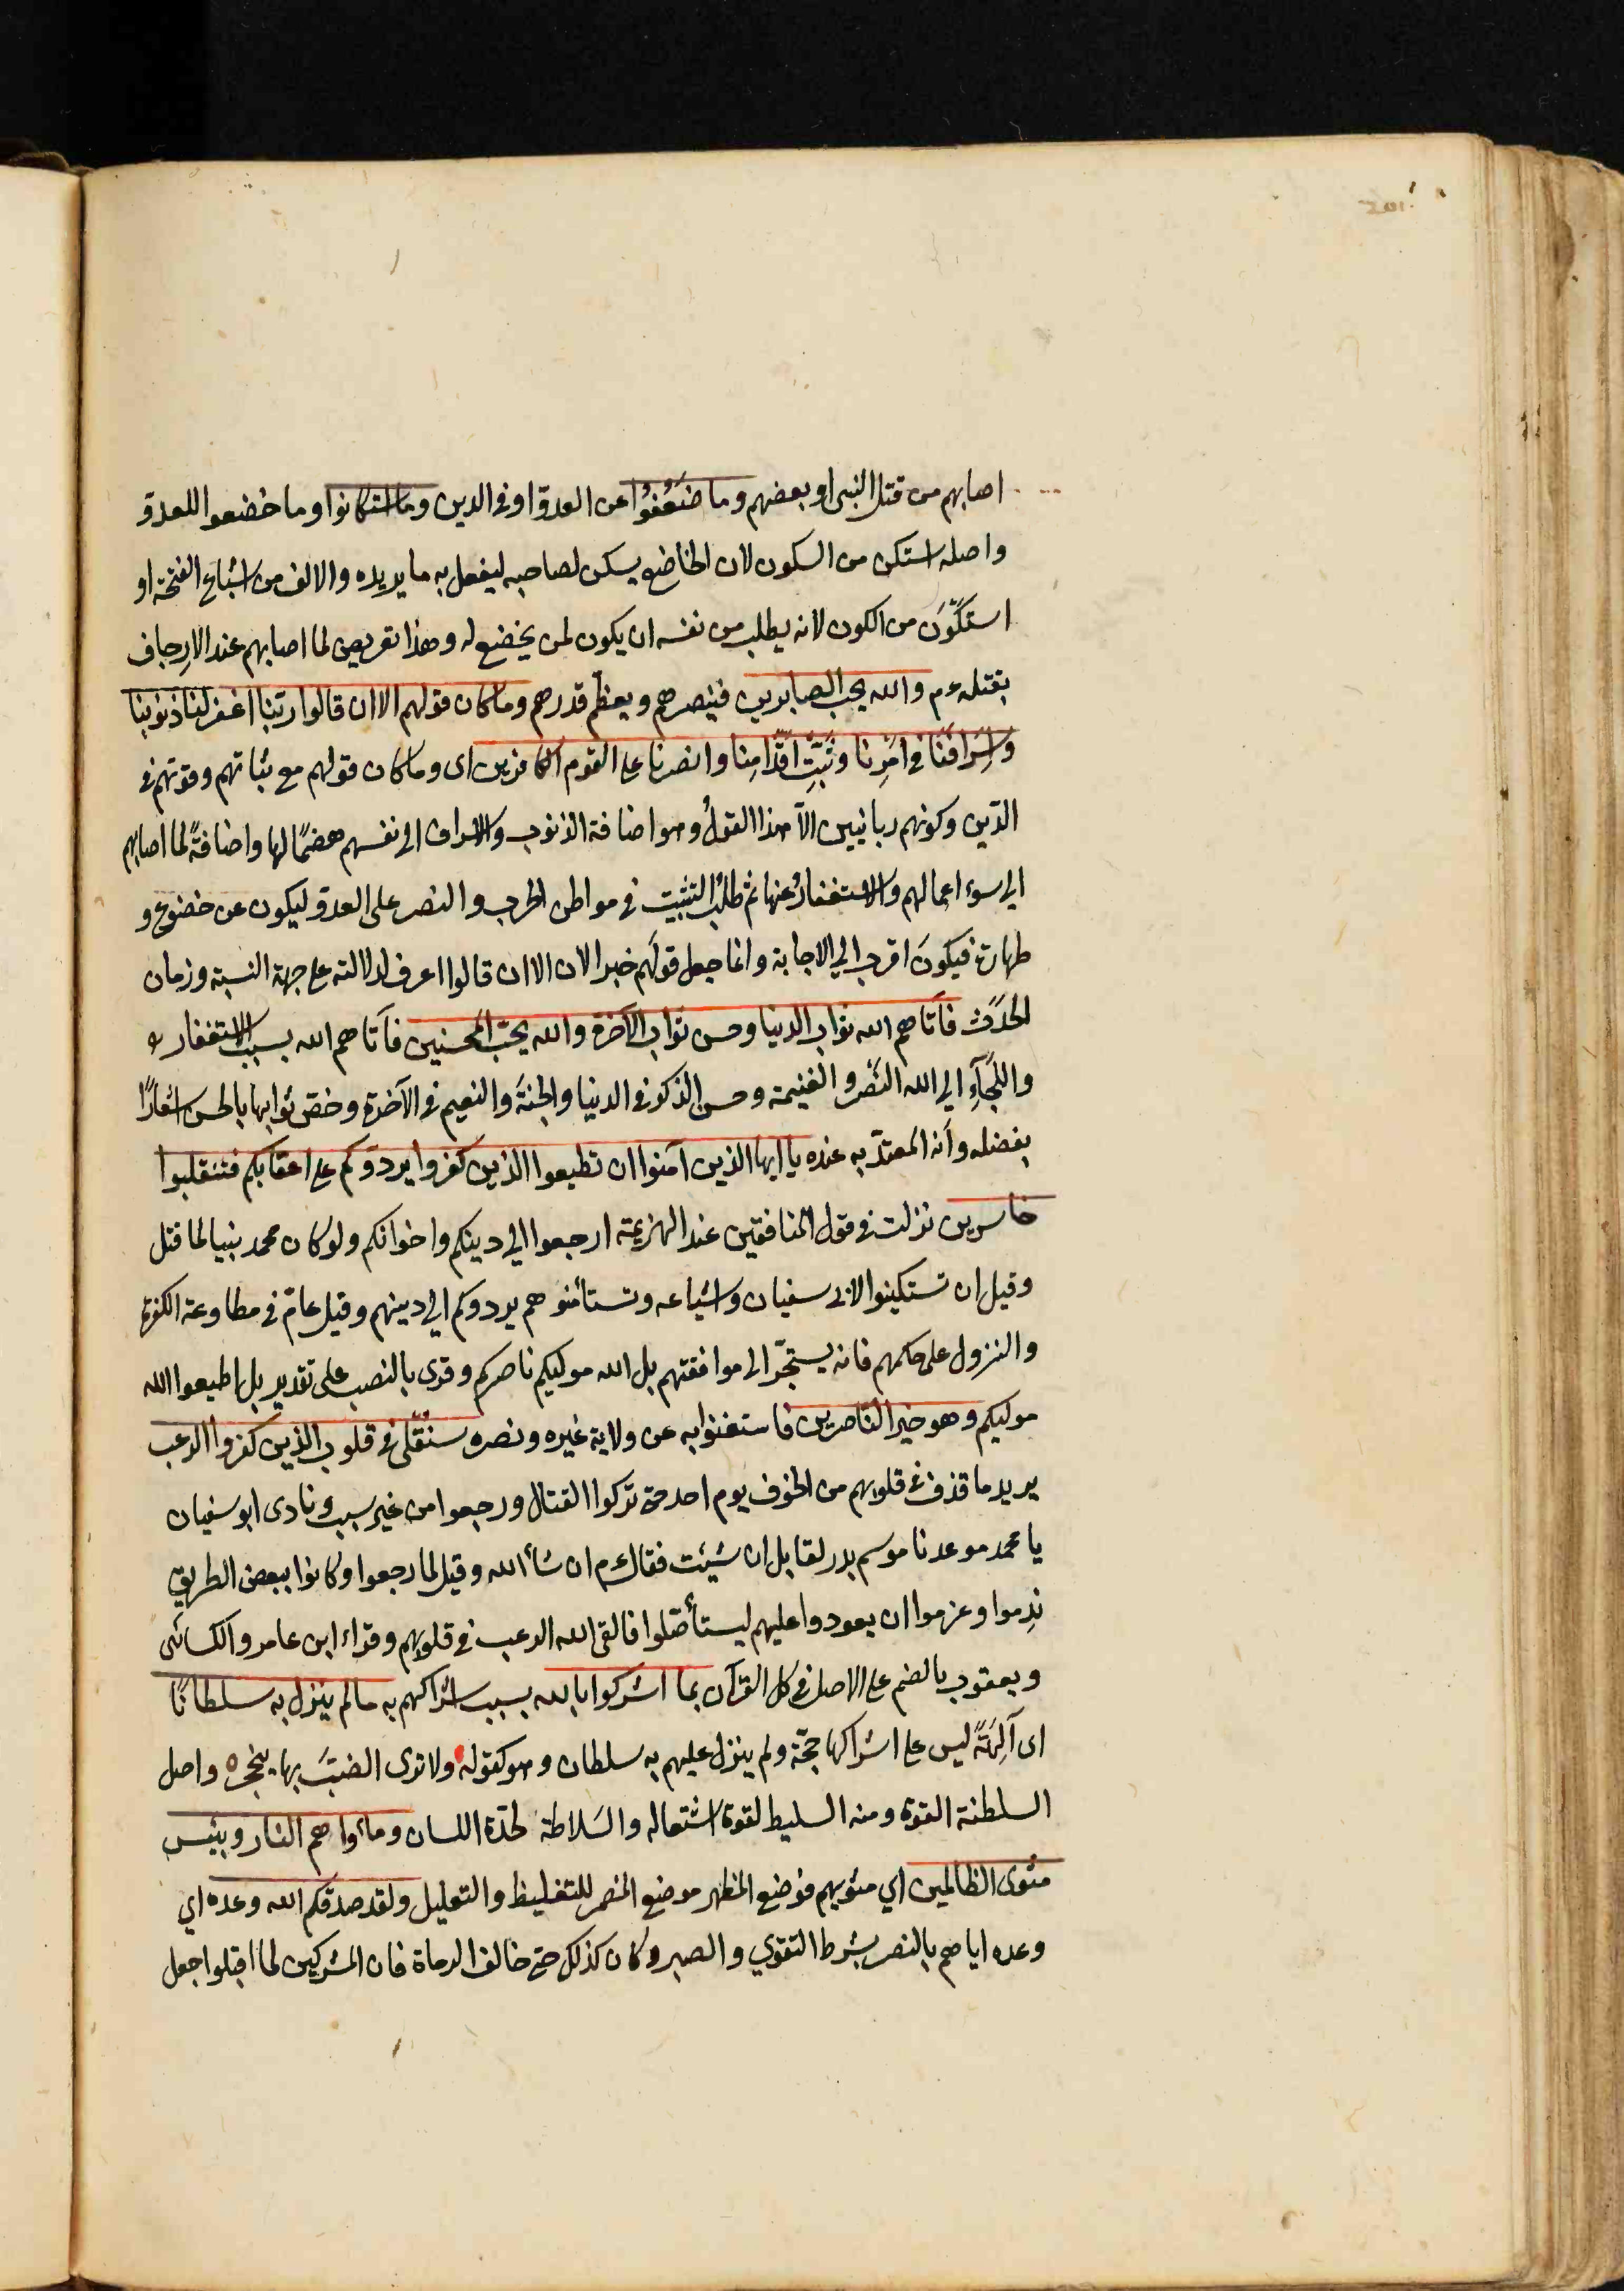 اصابهم من قتل النبي او بعضهم وما ضَعُفُوا عن العدوّ او في الدين وما استكانوا وما خضعوا للعدوّ
واصله استكن من السكون لان الخاضع يسكن لصاحبه ليفعل به ما يريده والالف من اشباع الفتحة او
استَكْوَن من الكون لانه يطلب من نفسه ان يكون لمن يخضع له وهذا تعريض لما اصابهم عند الارجاف
بقتله ءم والله يحب الصابرين فينصرهم ويعظّم قدرهم وما كان قولهم الا ان قالوا ربّنا اغفر لنا ذنوبنا
وَاِسْرافَنَا في اَمْرِنا وثَبِّتْ اَقْدَامِنا وانصرنا على القوم الكافرين اى وما كان قولهم مع ثباتهم وقوتهم في
الدّين وكونهم ربانيين الاّ هذا القولُ وهو اضافة الذنوب والاسراف الى نفسهم هضمًا لها واضافةً لما اصابهم
الي سوء اعمالهم والاستغفارُ عنها ثم طلبُ التثبيت في مواطن الحرب والنصر على العدوّ ليكون عن خضوع و
طهارة فيكونَ اقرب الي الاجابة وانما جعل قولَهم خبرا لان الا ان قالوا اعرف لدلالته على جهة النسبة وزمان
الحَدَث فاَتاهم الله ثواب الدنيا وحسن ثواب الآخرة والله يحبّ المحسنين فآتاهم الله بسبب الاستغفار و
واللَّجَآءِ الي الله النَصْر والغنيمة وحسن الذكر في الدنيا والجنةَ والنعيم في الآخرة وخصّ ثوابها بالحسن اشعارًا
بفضله وأنه المعتدّ به عنده يا ايها الذين آمنوا ان تطيعوا الذين كفروا يردوكم على اعقابكم فتنقلبوا
خاسرين نزلت في قول المنافقين عند الهزيمة ارجعوا الي دينكم واخوانكم ولو كان محمد نبيا لما قتل
وقيل ان تستكينوا لابي سفيان واشياعه وتستأمنوهم يردوكم الي دينهم وقيل عامّ في مطاوعة الكفرة
والنزول على حكمهم فانه يستجرّ الى موافقتهم بل الله موليكم ناصركم وقرى بالنصب على تقدير بل اطيعوا الله
موليكم وهو خير النّاصرين فاستغنوا به عن ولاية غيره ونصره سنُلقى في قلوب الذين كفروا الرعب
يريد ما قذف في قلوبهم من الخوف يوم احد حتى تركوا القتال ورجعوا من غير سبب ونادى ابو سفيان
يا محمد موعدنا موسم بدر لقابل ان شئت فقال ءم ان شأ الله وقيل لما رجعوا وكانوا ببعض الطريق
نَدِموا وعزموا ان يعودوا عليهم ليستأصَلوا فالقى الله الرعب في قلوبهم وقراء ابن عامر والكسائى
ويعقوب بالضم على الاصل في كل القرآن بما اشركوا بالله بسبب اشراكهم به ما لم ينزل به سلطانًا
اى آلِهَةً ليس على اشراكها حجّة ولم ينزل عليهم به سلطان وهو كقوله ولا ترى الضبَّ بها ينجحر واصل
السلطنة القوة ومنه السليط لقوة اشتعاله والسَلاطة لحدّة اللسان ومأواهم النار وبئس
مثوى الظالمين اي مثويهم فوضع المظهر موضع المضمر للتغليظ والتعليل ولقد صدقكم الله وعده اي
وعده اياهم بالنصر بشرط التقوي والصبر وكان كذلك حتى خالف الرماة فان المشركين لما اقبلوا جعل